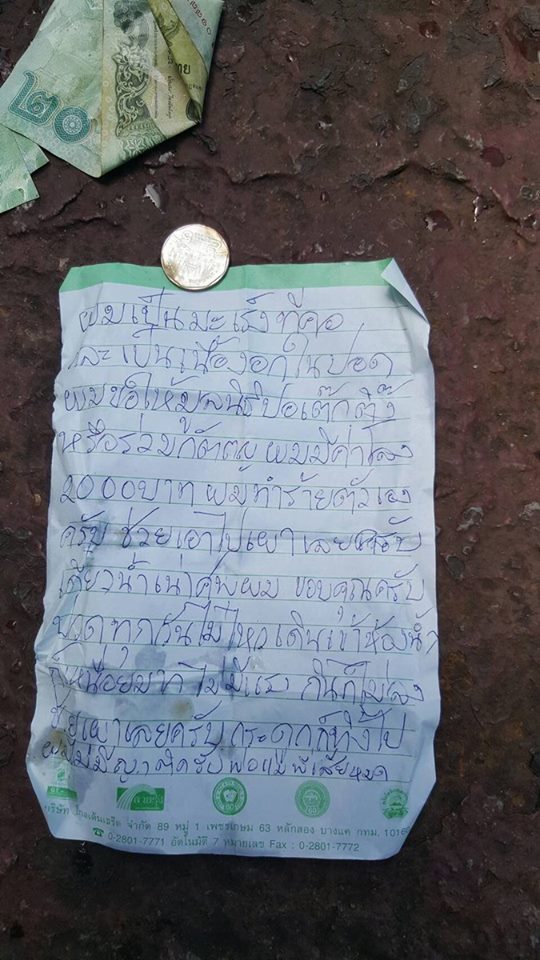 ๒๐
ผมเป็นมะเร็งที่คอ
และเป็นเนื้องอกในปอด
ผมขอให้มูลนิธิปอเต๊กตึ๊ง
หรือร่วมกตัญญู ผมมีค่าโลง
2000บาท ผมทำร้ายตัวเอง
ครับ ช่วยเอาไปเผาเลยครับ
เดียวน้ำเน่าศพผม ขอบคุณครับ
ปวดทุกวันไม่ไหวเดินเข้าห้องน้ำ
ก็เหนือยมาก ไม่มีแรง กินก็ไม่ลง
ช่วยเผาเลยครับ กระดูกก็ทิ้งไป
ผมไม่มีญาติครับ พ่อแม่พี่เสียหมด
บริษัท จำกัด 89 หมู่ 1 เพชรเกษม 63 หลักสอง บางแค กทม. 10160
☎ 0-2801-7771 อัตโนมัติ 7 หมายเลข Fax : 0-2801-7772